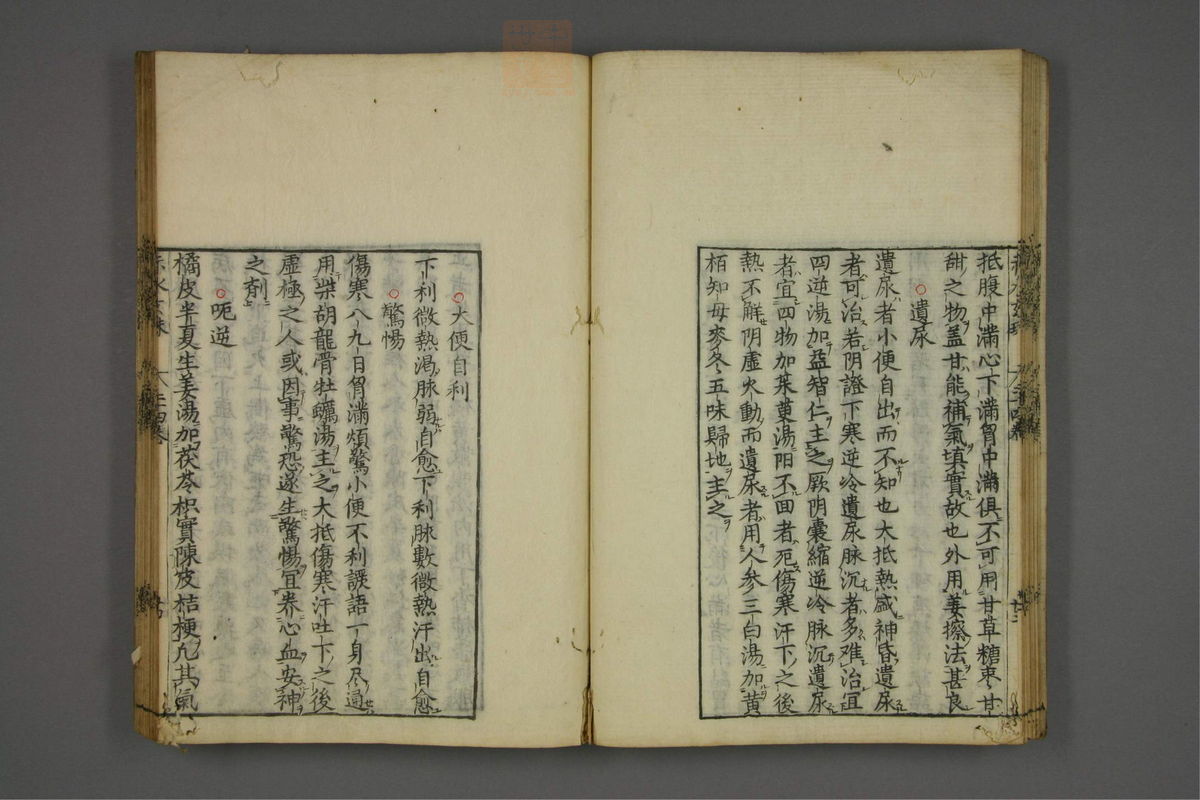 抵腹中滿心下滿胷中滿俱不可用甘草糖枣甘
甜之物盖甘能補氣填實故也外用姜擦法甚良
○遺尿
遺尿者小便自出而不知也大抵熱盛神昏遺尿
者可治若阴證下寒逆冷遺尿脉沉者多难治宜
四逆湯加益智仁主之厥阴囊縮逆冷脉沉遺尿
者宜四物加茱萸湯阳不回者死傷寒汗下之後
熱不解阴虚火動而遺尿者用人参三白湯加黄
栢知母麥冬五味歸地主之
○大便自利
下利微熱渴脉弱自愈下利脉數微熱汗出自愈
○驚惕
傷寒八九日胷滿煩驚小便不利讝語一身尽
用柴胡龍骨牡蠣湯主之大抵傷寒汗吐下之後
虚極之人或因事驚恐遂生驚惕宜养心血安神
之劑
○呃逆
橘皮半夏生姜湯加茯苓枳實陳皮桔梗九其氣